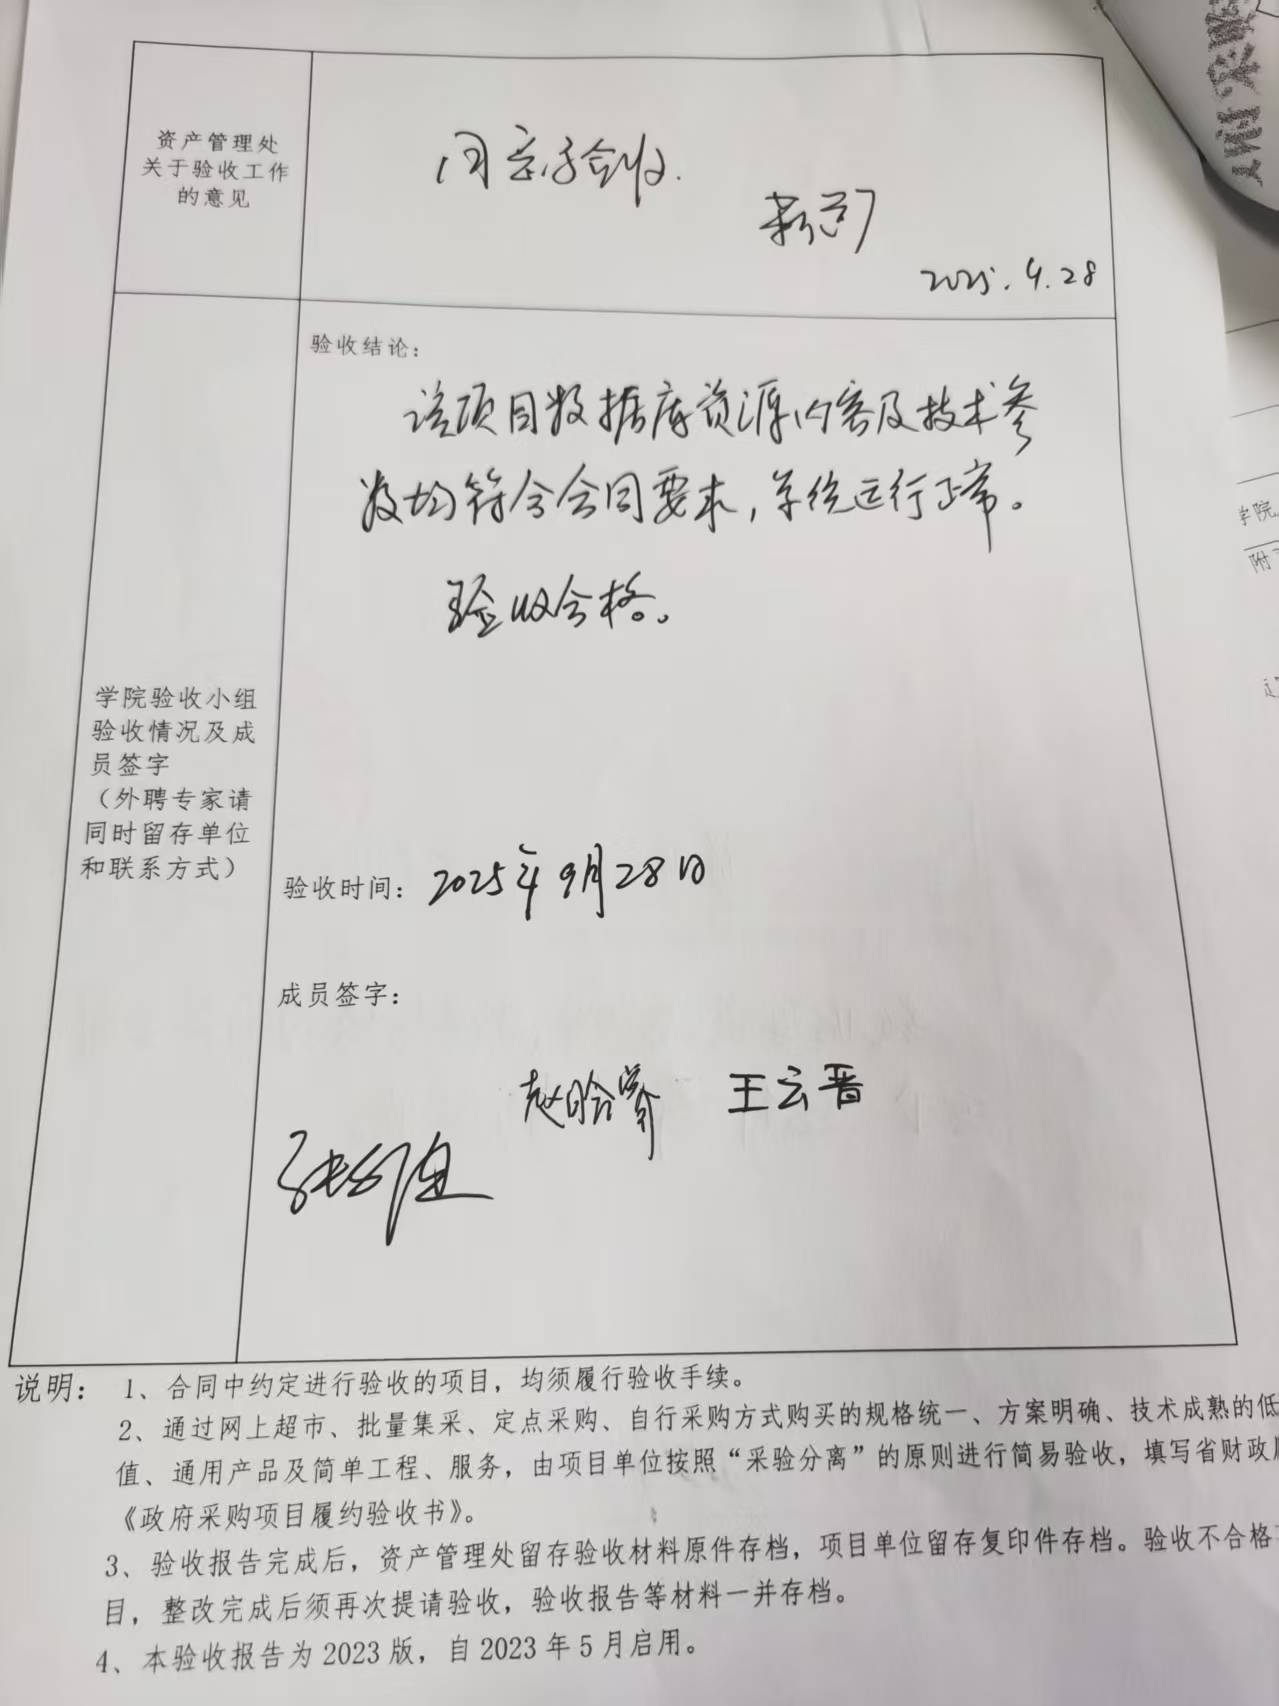 资产管理处
关于验收工作
的意见
同意验收.
2025.9.28
验收结论：
该项目数据库资源内容及技术参
数均符合合同要求，系统运行正常。
验收合格。
学院验收小组
验收情况及成
员签字
（外聘专家请
同时留存单位
和联系方式）
验收时间：2025年9月28日
成员签字：
王云晋
说明：1、合同中约定进行验收的项目，均须履行验收手续。
2、通过网上超市、批量集采、定点采购、自行采购方式购买的规格统一、方案明确、技术成熟的低
值、通用产品及简单工程、服务，由项目单位按照“采验分离”的原则进行简易验收，填写省财政
《政府采购项目履约验收书》。
3、验收报告完成后，资产管理处留存验收材料原件存档，项目单位留存复印件存档。验收不合格
目，整改完成后须再次提请验收，验收报告等材料一并存档。
4、本验收报告为2023版，自2023年5月启用。
学院
附